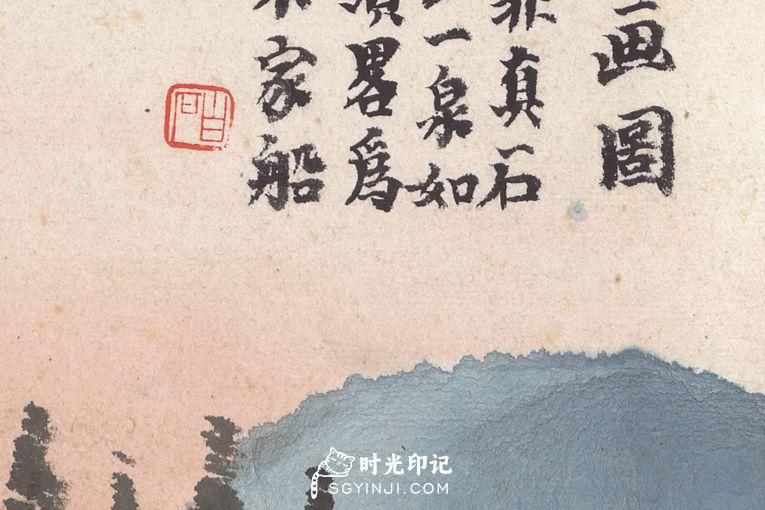 画圖
非真石
一泉如
畧爲
家船
时光印记
SGYINJI.COM